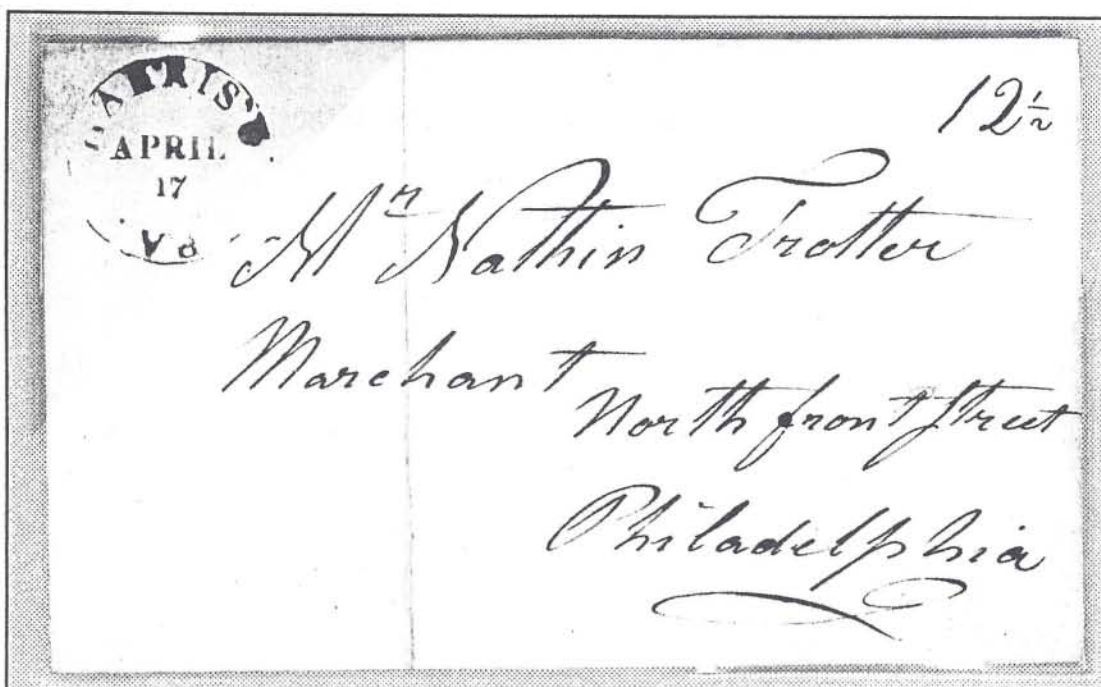 APRIL
17
12½
Mr Nathin Trotter
Marchant
North front Street
Philadelphia